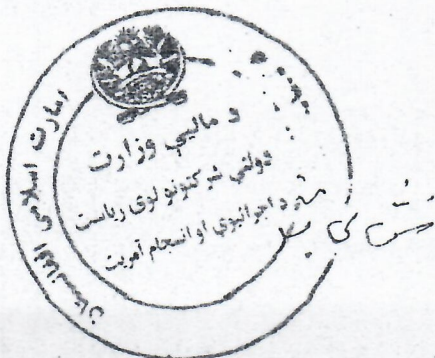 امارت اسلامی افغانستان
د مالیې وزارت
دولتي شرکتونو لوی ریاست
د اجرائیوي او انسجام آمریت